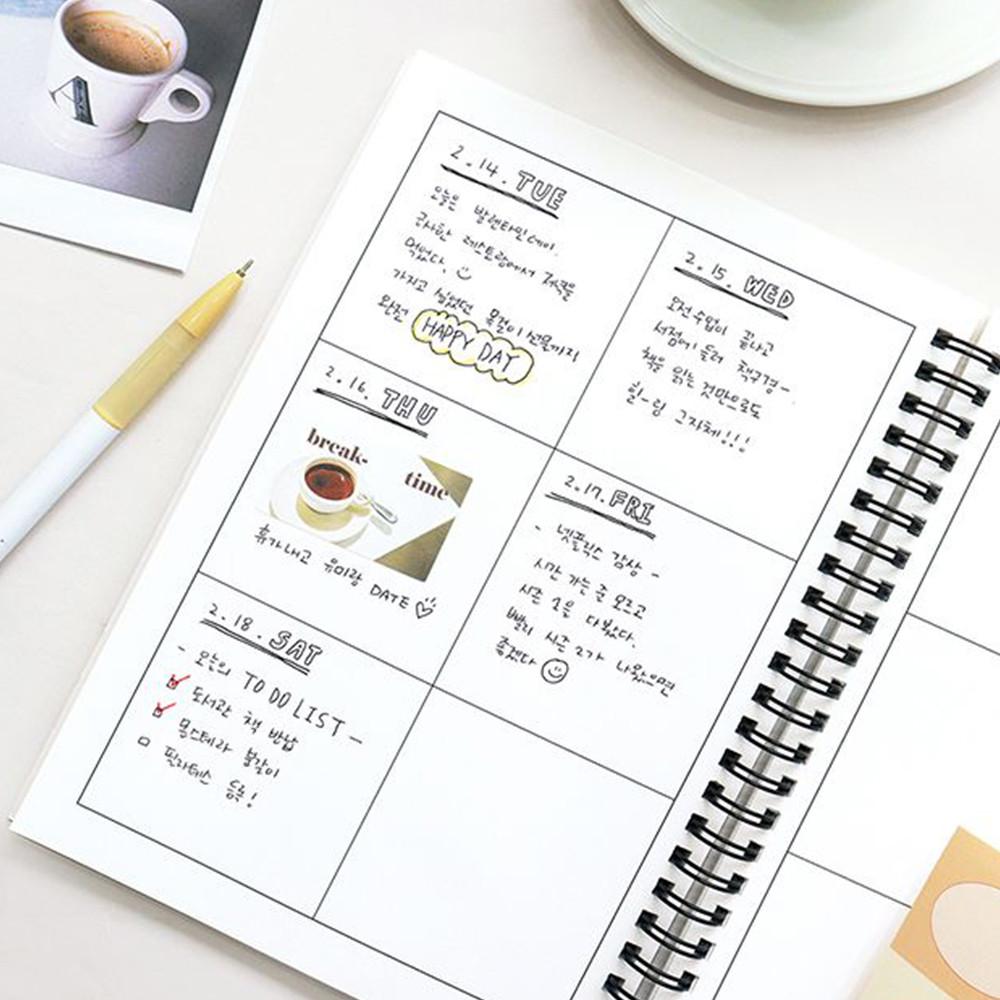 2.14. TUE
오늘은 발렌타인데이.
근사한 레스토랑에서 저녁을
먹었다.
가지고 싶었던 목걸이 선물까지
완전 HAPPY DAY
2.15. WED
오전수업이 끝나고
서점에 들러 책구경~
책을 읽는 것만으로도
힐-링 그자체!!!
2.16. THU
break-
time
휴가내고 유미랑 DATE
2.17. FRI
- 넷플릭스 감상 -
시간 가는 줄 모르고
시즌 1을 다봤다.
빨리 시즌 2가 나왔으면
좋겠다
2.18. SAT
- 오늘의 TO DO LIST -
도서관 책 반납
몽스테라 분갈이
필라테스 등록!